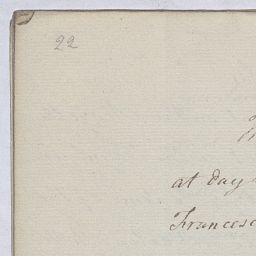 22
at day
Francesc